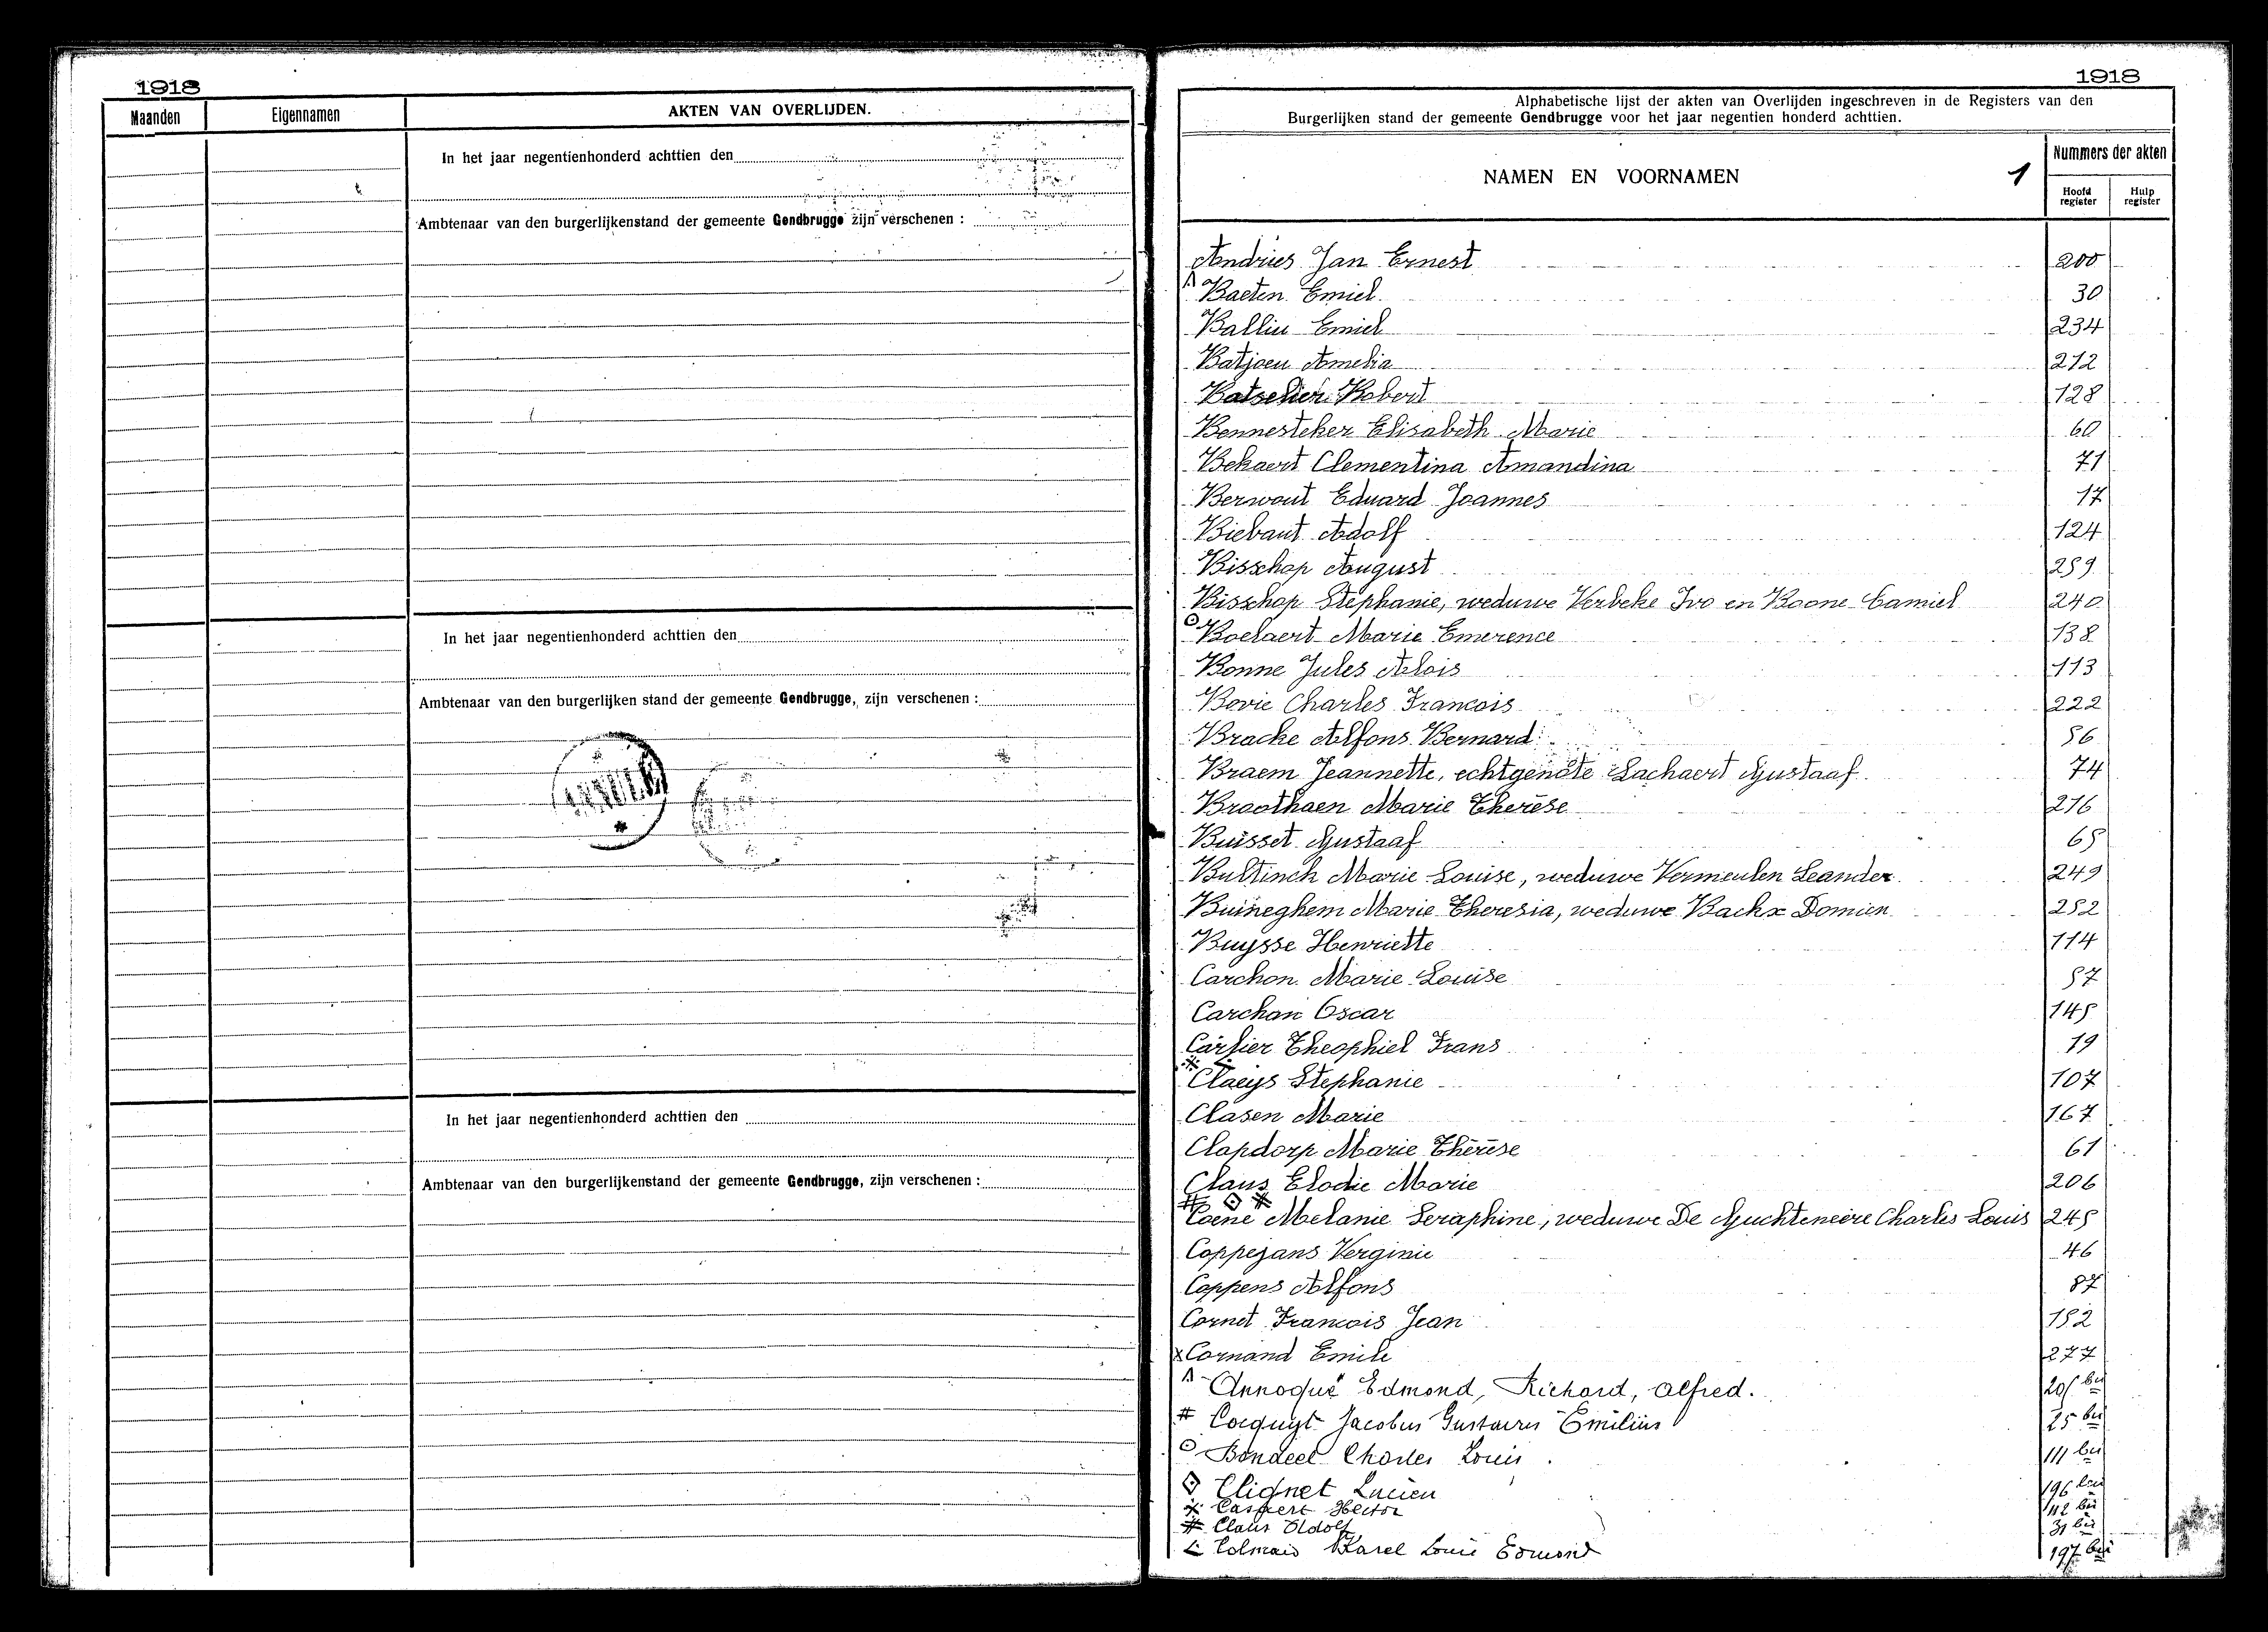 1918
Maanden
Eigennamen
AKTEN VAN OVERLIJDEN.
In het jaar negentienhonderd achttien den
Ambtenaar van den burgerlijkenstand der gemeente Gendbrugge zijn verschenen :
In het jaar negentienhonderd achttien den
Ambtenaar van den burgerlijken stand der gemeente Gendbrugge, zijn verschenen :
In het jaar negentienhonderd achttien den
Ambtenaar van den burgerlijkenstand der gemeente Gendbrugge, zijn verschenen :
1918
Alphabetische lijst der akten van Overlijden ingeschreven in de Registers van den
Burgerlijken stand der gemeente Gendbrugge voor het jaar negentien honderd achttien.
NAMEN EN VOORNAMEN 1
Nummers der akten
Hoofd register
Hulp register
Andries Jan Ernest 200
Baeten Emiel 30
Balliu Emiel 234
Batjoen Amelia 212
Robert 128
Bennesteker Elisabeth Marie 60
Bekaert Clementina Amandina 71
Berwout Eduard Joannes 17
Biebaut Adolf 124
Bisschop August 259
Bisschop Stephanie, weduwe Verbeke Ivo en Boone Camiel 240
Boelaert Marie Emerence 138
Bonne Jules Alois 113
Bovie Charles Francois 222
Bracke Alfons Bernard 56
Braem Jeannette, echtgenote Lachaert Gustaaf 74
Braothaen Marie Therèse 216
Buisset Gustaaf 65
Bultinck Marie Louise, weduwe Vermeulen Leander 249
Buineghem Marie Theresia, weduwe Backx Domien 252
Buysse Henriette 114
Carchon Marie Louise 57
Carchon Oscar 145
Carlier Theophiel Frans 19
Claeys Stephanie 107
Clasen Marie 167
Clapdorp Marie Thérèse 61
Claus Elodie Marie 206
Coene Melanie Seraphine, weduwe De Guchteneire Charles Louis 245
Coppejans Verginie 46
Coppens Alfons 87
Cornet Francois Jean 152
x Cornand Emile 277
Annoqué Edmond, Richard, Alfred. bis
# Cocquyt Jacobus Gustavus Emilius 25 bis
Bondeel Charles Louis 111 bis
Clignet Lucien 196 bis
Caspeert Hector 112 bis
# Claus Adolf 31 bis
Colmain Karel Louis Edmond 197 bis